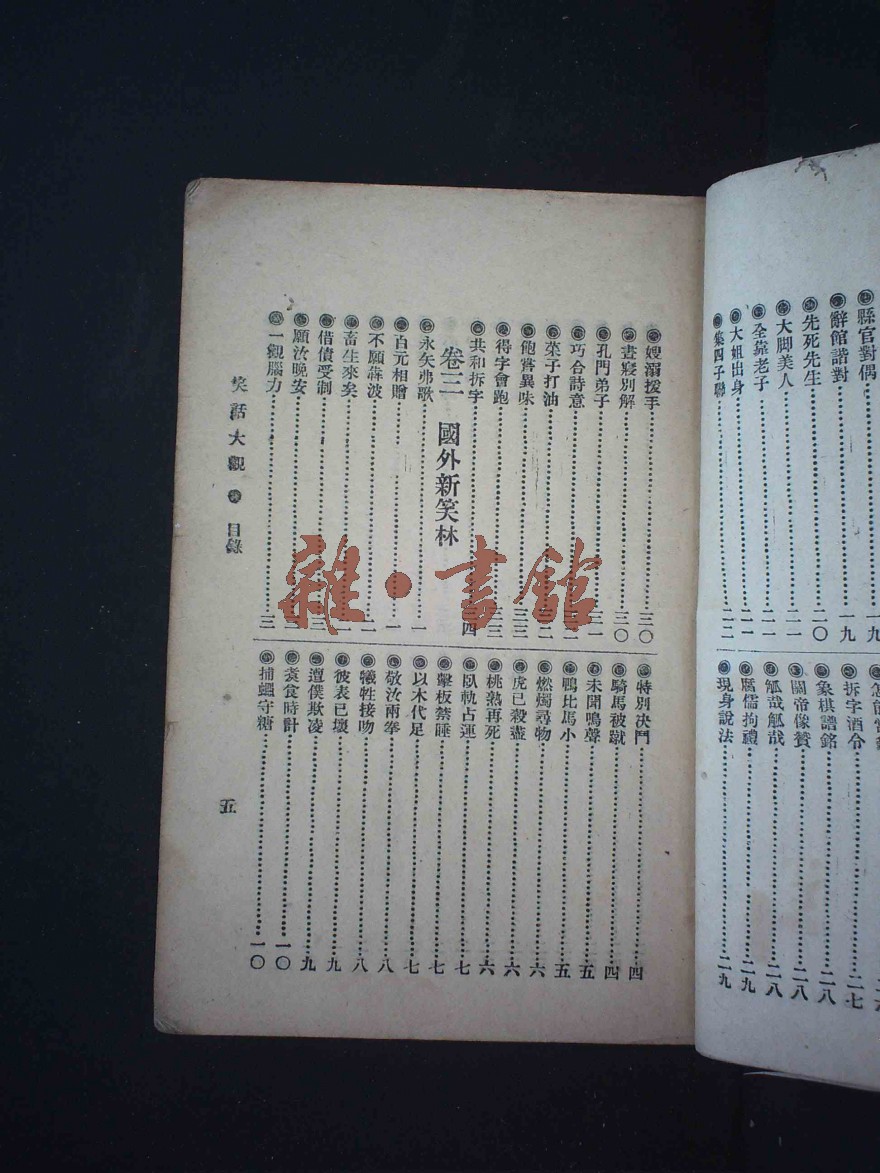 縣官對偶……一九
辭館諧對……一九
先死先生……二〇
大脚美人……二一
全靠老子……二一
大姐出身……二二
集四子聯……二二
拆字酒令……二七
象棋譜銘……二八
關帝像贊……二八
觚哉觚哉……二八
腐儒拘禮……二九
現身說法……二九
嫂溺援手……三〇
晝寢別解……三〇
孔門弟子……三一
巧合詩意
菜子打油
飽嘗異味
得字會跑
共和拆字
卷三　國外新笑林
永矢弗歌……一
百元相贈……一
不願犇波……二
畜生來矣
借債受制……三
願汝晚安
一觀腦力……三
特別决鬥……四
騎馬被蹴……四
未聞鳴聲……五
鴨比馬小……五
燃燭尋物……六
虎已殺盡……六
桃熟再死……六
臥軌占運……七
擊板禁睡……七
以木代足……七
敬汝兩拳……八
犧牲接吻……八
彼表已壞……九
遭僕欺凌……九
煑食時計……一〇
捕蠅守糖……一〇
笑話大觀　目錄
五
雜·書館